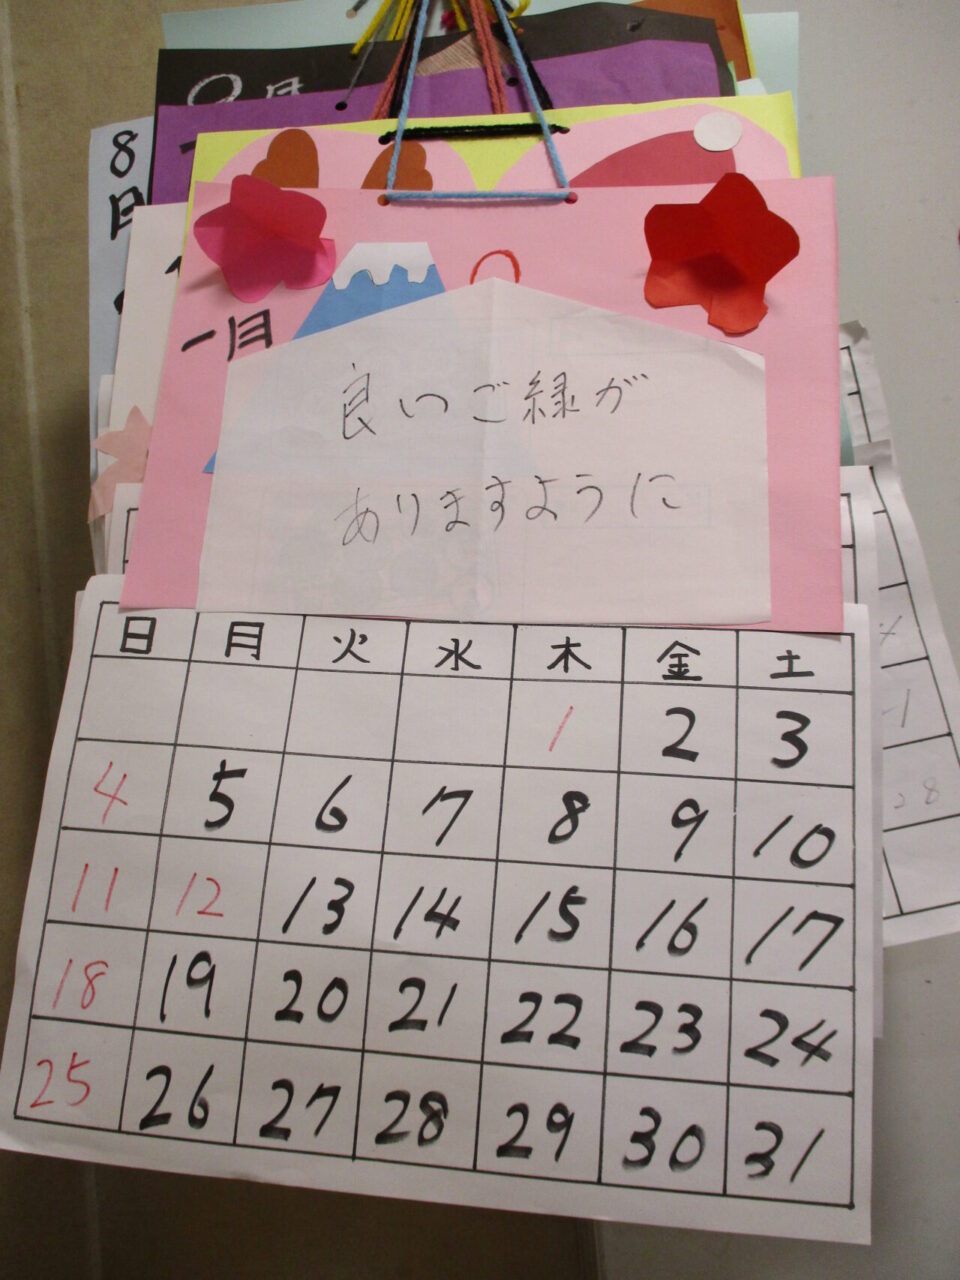 8
一月
良いご縁が
ありますように
日 月 火 水 木 金 土
1 2 3
4 5 6 7 8 9 10
11 12 13 14 15 16 17
18 19 20 21 22 23 24
25 26 27 28 29 30 31
28